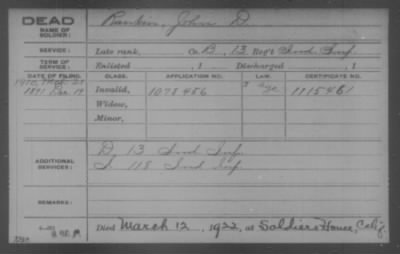 DEAD
NAME OF SOLDIER: Rankin, John D.
SERVICE: Late rank, Co. B, 13 Reg't Ind Inf.
TERM OF SERVICE: Enlisted , 1 Discharged , 1
DATE OF FILING. CLASS. APPLICATION NO. LAW. CERTIFICATE NO.
1891 19 Invalid, 1078456 1115461
Widow,
Minor,
ADDITIONAL SERVICES: D. 13 Ind Inf.
I. 118 Ind Inf.
REMARKS:
Died March 12, 1922, at Soldiers Home, Calif.